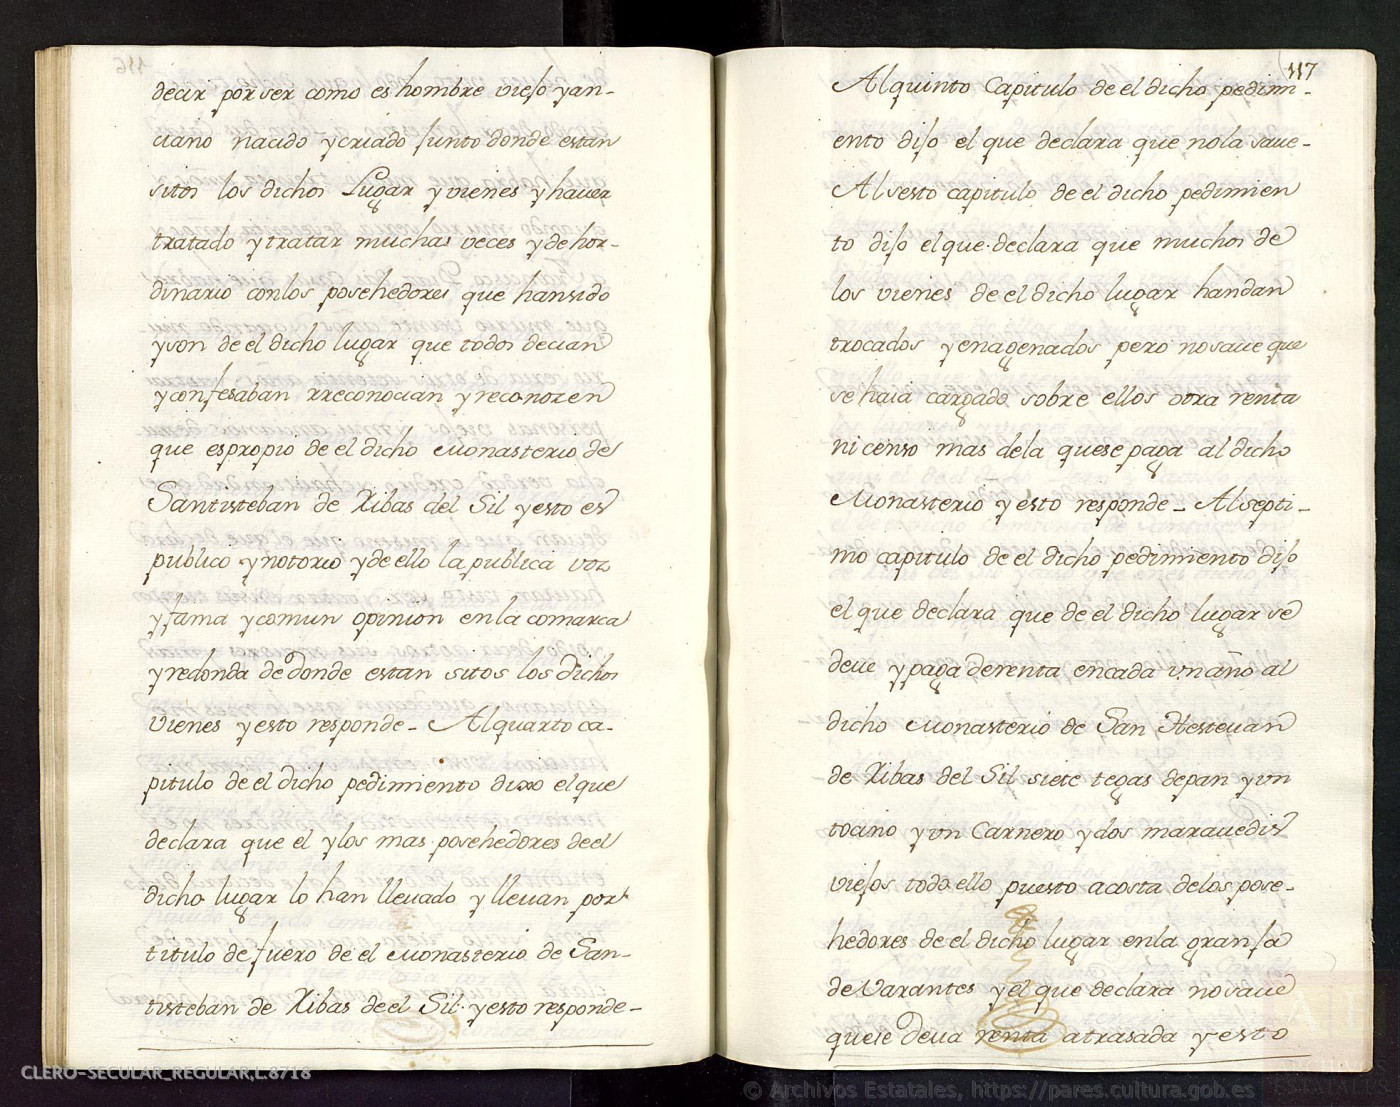 decir por ser como es hombre viejo y an-
ciano nacido y criado junto donde estan
sitos los dichos Lugar y vienes y haver
tratado y tratar muchas veces y de hor-
dinario con los posehedores que han sido
y son de el dicho lugar que todos decian
y confesaban rreconocian y reconozen
que es propio de el dicho Monasterio de
Santisteban de Ribas del Sil y esto es
publico y notorio y de ello la publica voz
y fama y comun opinion en la comarca
y redonda de donde estan sitos los dichos
vienes y esto responde - Al quarto ca-
pitulo de el dicho pedimiento dixo el que
declara que el y los mas posehedores de el
dicho lugar lo han llevado y llevan por
titulo de fuero de el Monasterio de San-
tisteban de Ribas de el Sil y esto responde -
117
Al quinto Capitulo de el dicho pedimi-
ento dijo el que declara que no la save -
Al sesto capitulo de el dicho pedimien
to dijo el que declara que muchos de
los vienes de el dicho lugar handan
trocados y enagenados pero no save que
se haia cargado sobre ellos otra renta
ni censo mas de la que se paga al dicho
Monasterio y esto responde - Al septi-
mo capitulo de el dicho pedimiento dijo
el que declara que de el dicho lugar se
deve y paga de renta en cada vn año al
dicho Monasterio de San Hestevan
de Ribas del Sil siete tegas de pan y vn
tocino y vn Carnero y dos maravedis
viejos todo ello puesto a costa de los pose-
hedores de el dicho lugar en la granja
de Varantes y el que declara no save
que se deva renta atrasada y esto
CLERO-SECULAR_REGULAR,L.8718
© Archivos Estatales, https://pares.cultura.gob.es